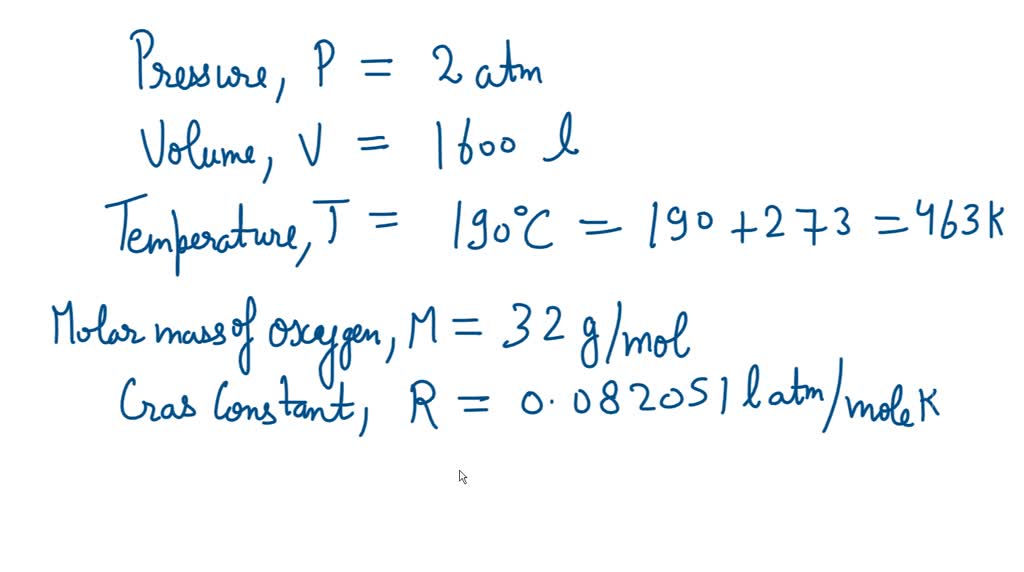 Pressure, P = 2 atm
Volume, V = 1600 l
Temperature, T = 190°C = 190 + 273 = 463K
Molar mass of oxygen, M = 32 g/mol
Gas Constant, R = 0.082051 l atm/mole K